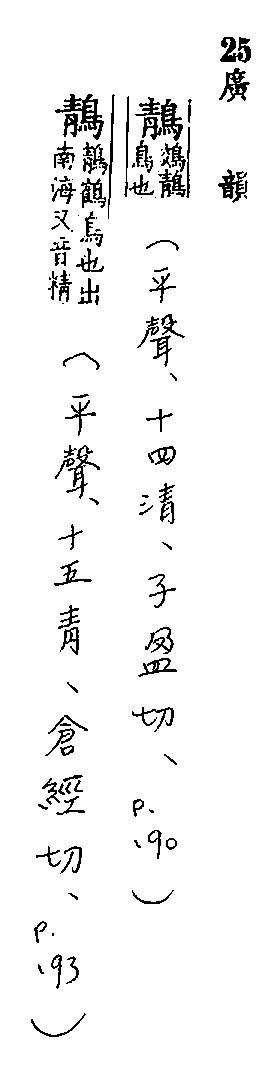 25廣韻
鶄鵁鶄鳥也（平聲、十四清、子盈切、p.190）
鶄鶄鶴鳥也出南海又音精（平聲、十五青、倉經切、p.193）